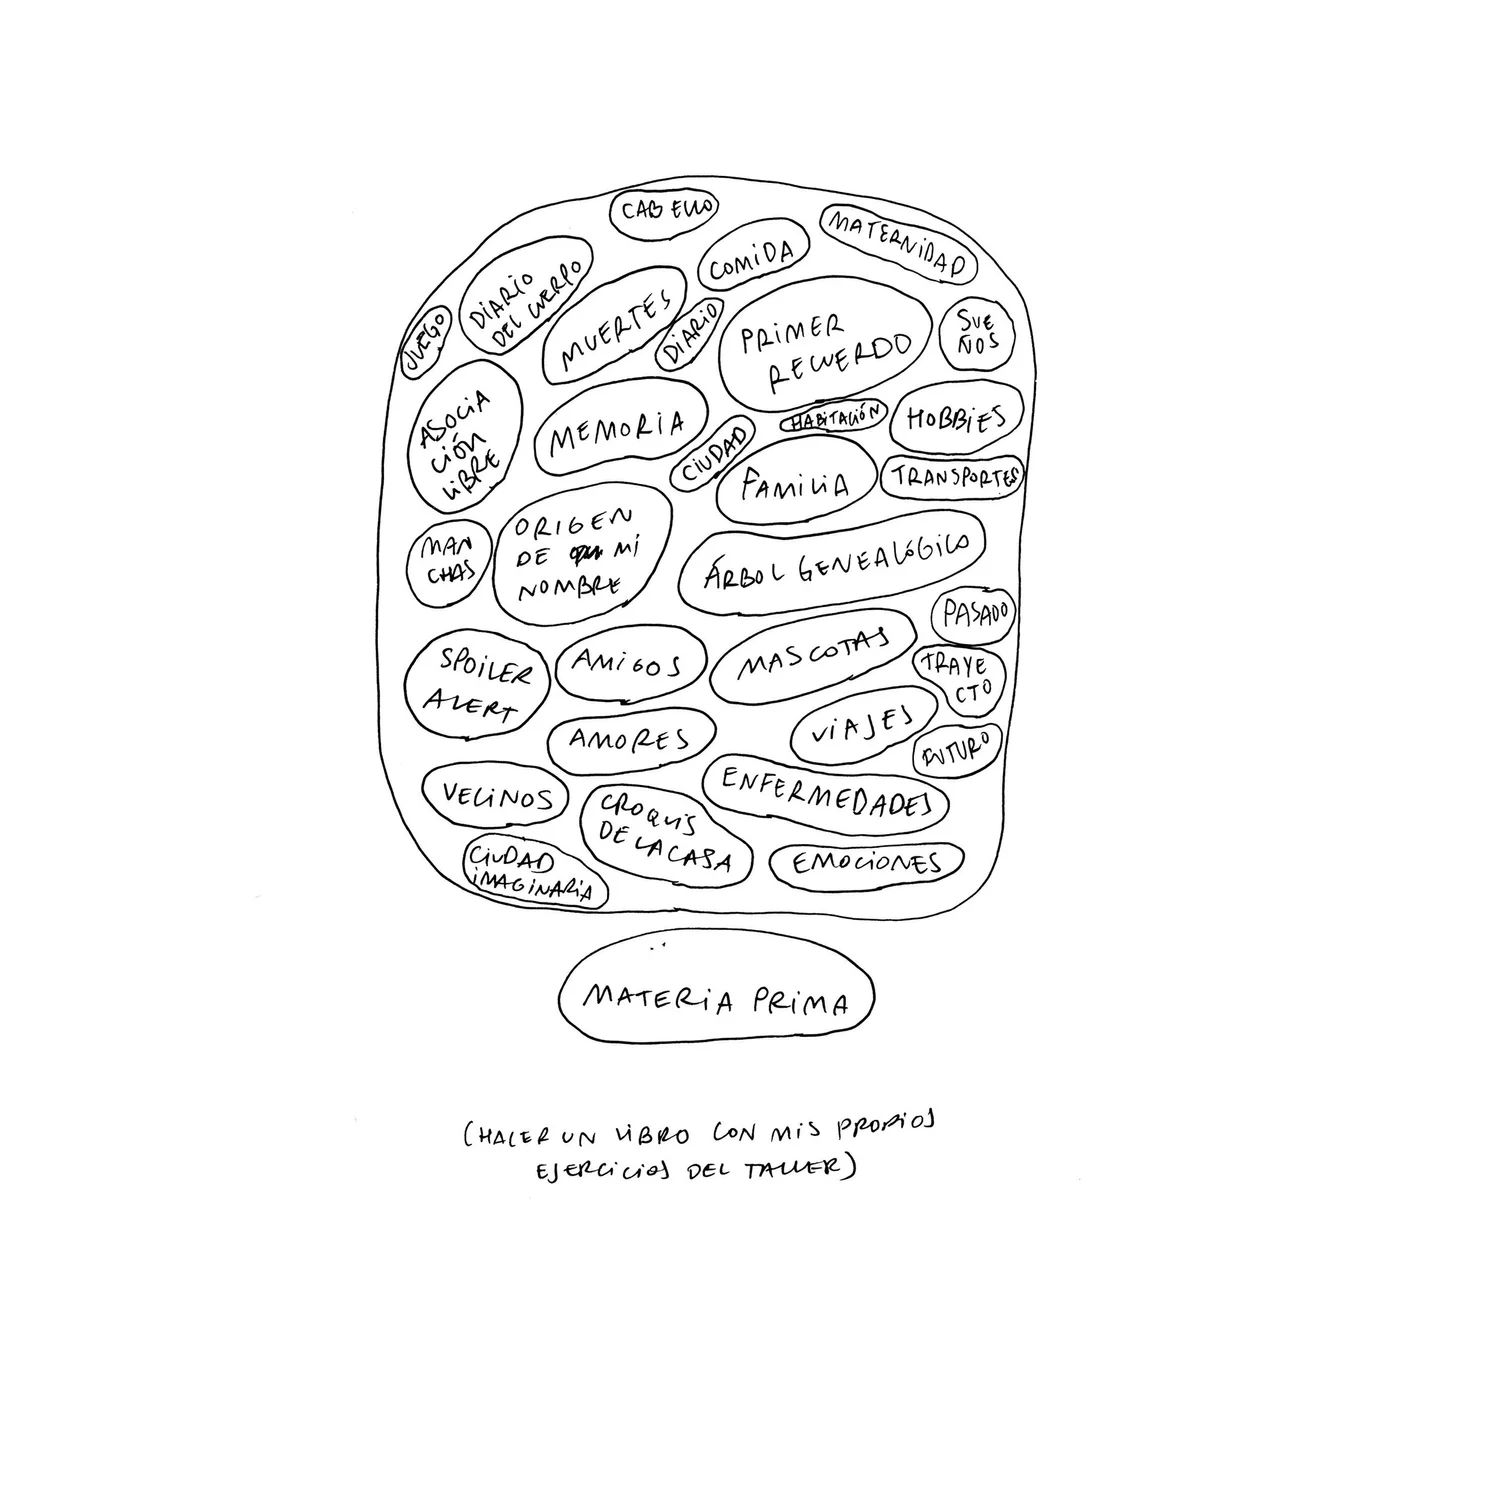 CABELLO
MATERNIDAD
COMIDA
DIARIO
DEL CUERPO
MUERTES
DIARIO
JUEGO
PRIMER
RECUERDO
SUE
ÑOS
ASOCIA
CIÓN
LIBRE
MEMORIA
CIUDAD
HABITACIÓN
HOBBIES
FAMILIA
TRANSPORTES
MAN
CHAS
ORIGEN
DE MI
NOMBRE
ÁRBOL GENEALÓGICO
PASADO
SPOILER
ALERT
AMIGOS
MASCOTAS
TRAYE
CTO
AMORES
VIAJES
FUTURO
VECINOS
CROQUIS
DE LA CASA
ENFERMEDADES
CIUDAD
IMAGINARIA
EMOCIONES
MATERIA PRIMA
(HACER UN LIBRO CON MIS PROPIOS
EJERCICIOS DEL TALLER)